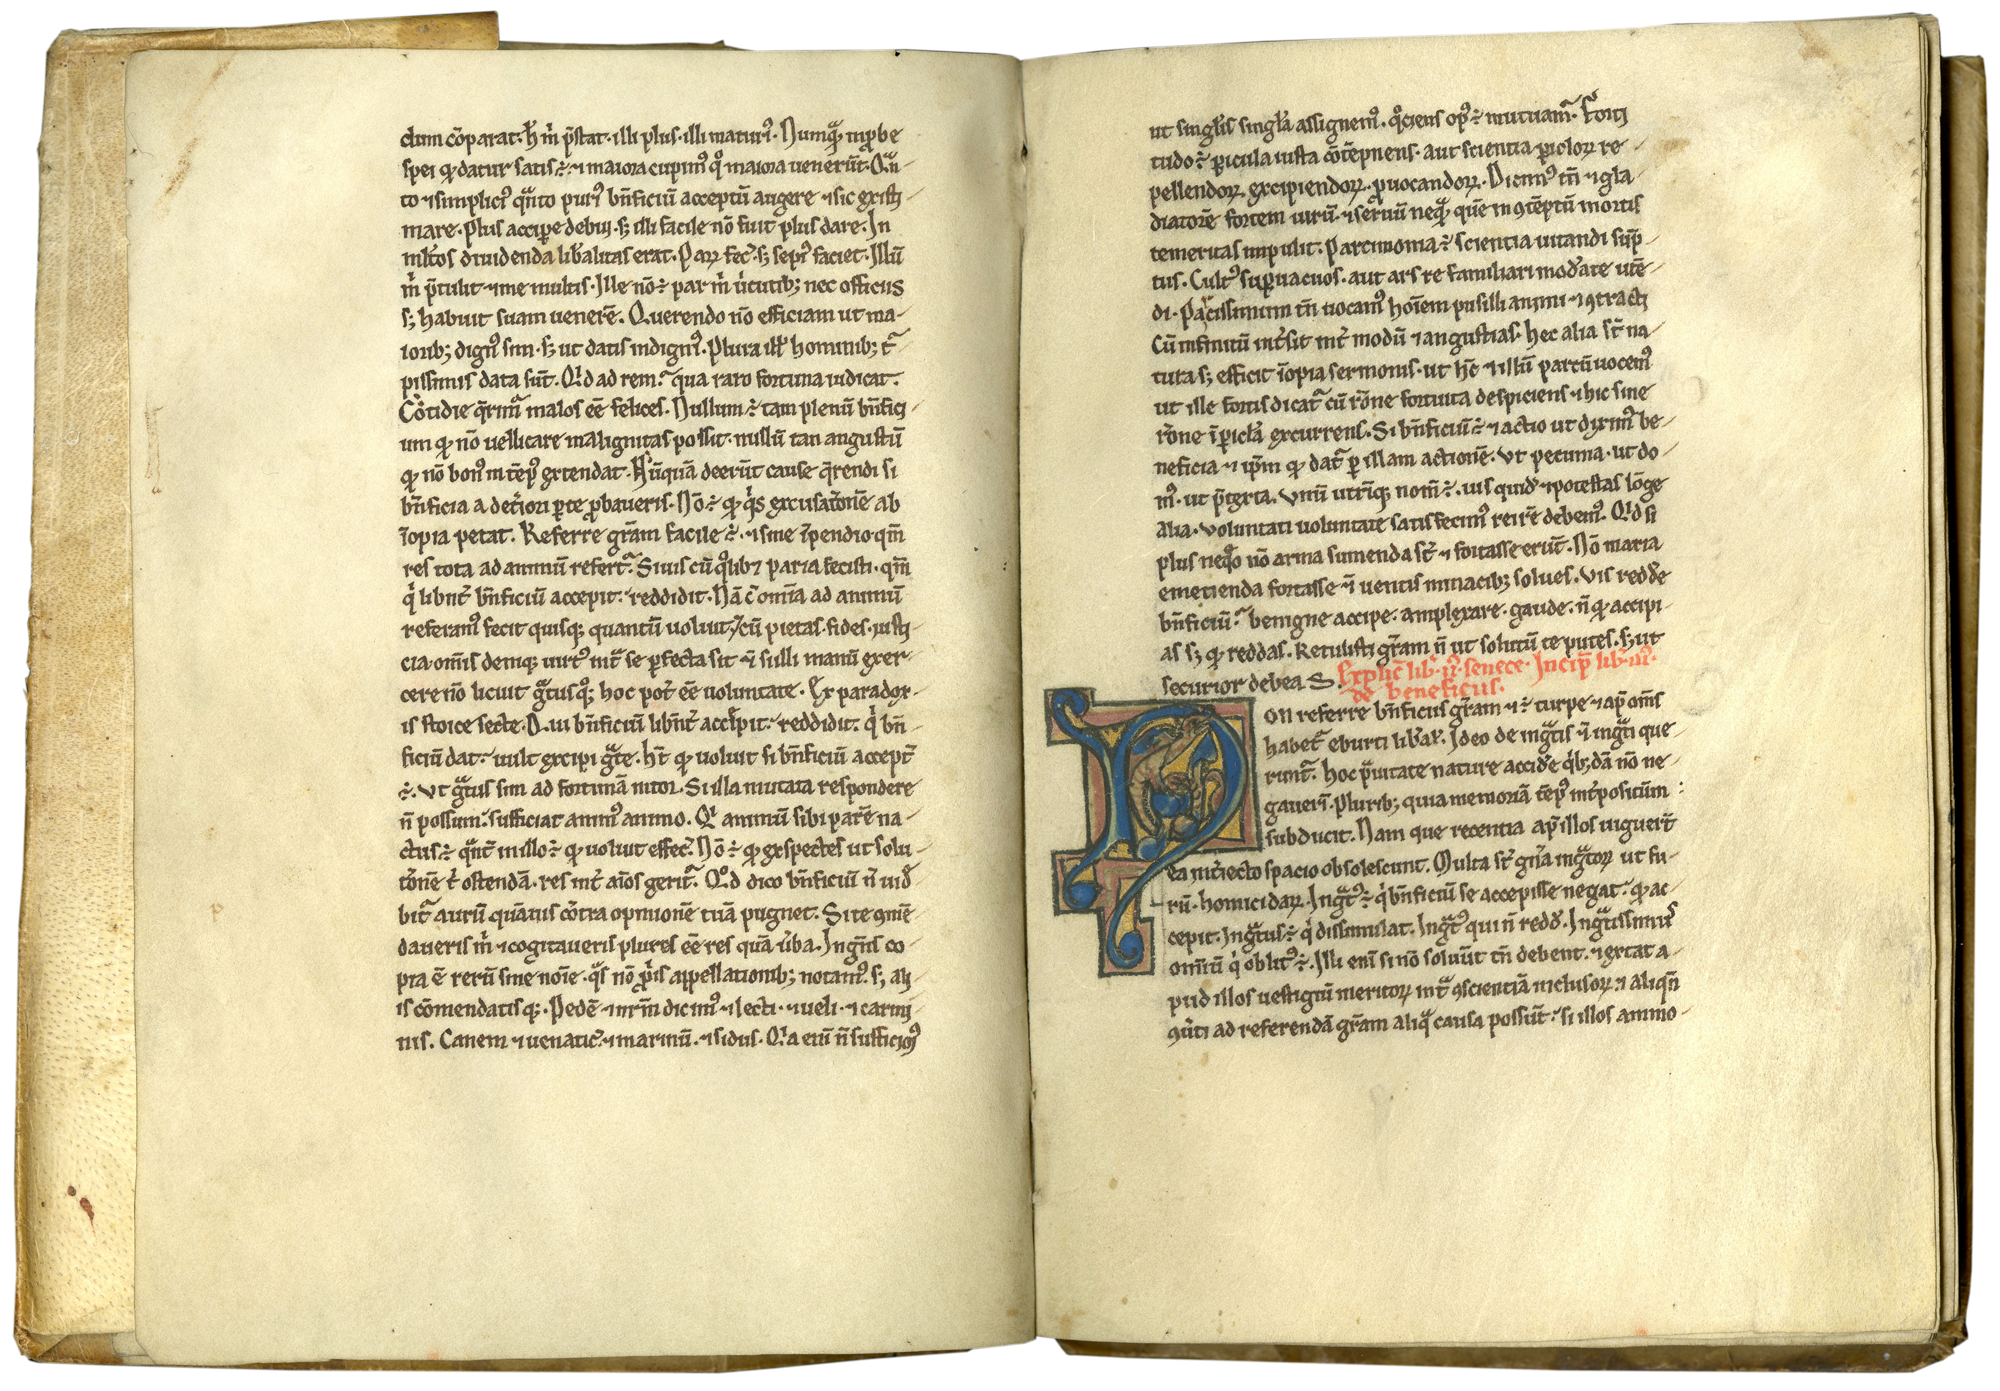 dum cōparat. h̄ m̄ p̄stat. illi plus. illi maturꝰ. Nunqᷓ inꝓbe
spei qͥ datur satis ÷. ⁊ maiora cupimꝰ qͦ maiora ueneruͭt. Qᷓn
to ⁊ simplicꝰ qᷓnto purꝰ bn̄ficiū acceptū augere ⁊ sic existi
mare. Plus accipe debui. sꝫ illi facile nō fuit plus dare. In
ml̄tos diuidenda libalitas erat. Parꝝ fec̄. sꝫ sepꝰ faciet. Illū
m̄ p̄tulit ⁊ me multis. Ille nō ÷ par m̄ uͥtutibꝫ nec officiis
sꝫ habuit suam uenerē. Querendo nō efficiam ut ma-
ioribꝫ dignꝰ sim. sꝫ ut datis indignꝰ. Plura ill̄ hominibꝫ tᷓ
pissimis data sūt. Qͥd ad rem.ᷓ qua raro fortuna iudicat.
Cōtidie q̄rimᷓ malos eē felices. Nullum ÷ tam plenū bn̄fici
um qͥ nō uellicare malignitas possit. nullū tan angustū
qͥ nō bonꝰ int̄ep̄ extendat. Nūquā deerūt cause q̄rendi si
bn̄ficia a det̄iori ꝑte ꝓbaueris. Nō ÷ qͥ qͥs excusat̄onē ab
īopia petat. Referre gr̄am facile ÷. ⁊ sine īpendio. qm̄
res tota ad animū refert.ᷓ Siuis cū qͦlib⁊ paria fecisti. qm̄
qͥ libnt̄ bn̄ficiū accepit.ᷓ reddidit. Nā c̄ om̄ia ad animū
referamꝰ fecit quisqꝫ quantū uoluit. ⁊ cū pietas. fides. iusti
cia. om̄is deniqꝫ uirtꝰ int̄ se ꝑfecta sit ⁊ si illi manū exer-
cere nō licuit gᷓtusqꝫ hoc pot̄ eē uoluntate. Ex paradox-
is stoice secte. Qui bn̄ficiū libnt̄ accipit.ᷓ reddidit. qͥ bn̄
ficiū dat.ᷓ uult excipi gᷓte. h̄t qͥ uoluit si bn̄ficiū accept̄
÷. Vt gᷓtus sim ad fortunā nitor. Si illa mutata respondere
n̄ possum.ᷓ sufficiat animꝰ animo. Qͥ animū sibi parē na-
ctus ÷ qᷓnt̄ in illo ÷ qͥ uoluit effec̄. Nō ÷ qͥ exspectes ut solu-
t̄onē t̄ ostendā. res int̄ aīos gerit.ᷓ Qͦd dico bn̄ficiū n̄ uid̄
bit̄ aurū quāuis cōtra opinionē tuā pugnet. Si te ꝯmē-
daueris m̄ ⁊ cogitaueris plures eē res quā ūba. Ingēs co-
pia ē rerū sine noīe. qᷓs nō ꝓpͥis appellationibꝫ notamꝰ. sꝫ ali
is cōmendatisqꝫ. Pedē ⁊ nr̄m dicimꝰ ⁊ lecti. ⁊ ueli. ⁊ carmi
nis. Canem ⁊ uenatic̄. ⁊ marinū. ⁊ sidus. Qͥa enī n̄ sufficimꝰ
ut singlis̄ singla̅ assignemꝰ. qͦciens opꝰ ÷ mutuamᷓ. Forti
tudo ÷ pericula iusta cōtēpnens. aut scientia ꝑiclorꝝ re-
pellendorꝝ. excipiendorꝝ. ꝓuocandorꝝ. Dicimꝰ tn̄ ⁊ gla-
diatorē fortem uirū. ⁊ seruū neqᷓ. quē in ꝯtēptū mortis
temeritas impulit. Parcimonia ÷ scientia uitandi sūp-
tus. Cultꝰ suꝑuacuos. aut ars re familiari mod̄ate utē-
di. Parcissimum tn̄ uocamꝰ hoīem pusilli animi ⁊ ꝯtracti
Cū infinitū int̄sit int̄ modū ⁊ angustias. hec alia sᷓt na-
tura sꝫ efficit īopia sermonis. ut hc̄ ⁊ illū parcū uocemꝰ
ut ille fortis dicatᷓ cū rōne fortuita despiciens. ⁊ hic sine
rōne ī ꝑicla̅ excurrens. Si bn̄ficiū ÷ ⁊ actio ut diximꝰ be-
neficia ⁊ ip̄m qͥ datᷓ ꝑ illam actionē. Vt pecunia. ut do-
mꝰ. ut p̄texta. Vnū utriqꝫ nom̄ ÷. uis quid̄ ⁊ potestas lōge
alia. Voluntati uoluntate satis fecimꝰ rei rē debemꝰ. Qͥd si
plus neqͦ nō arma sumenda sᷓt ⁊ fortasse erūt. Nō maria
emetienda fortasse n̄ uentis minacibꝫ solues. Vis redd̄e
bn̄ficiū.ᷓ benigne accipe. amplexare. gaude. n̄ qͥ accipi-
as sꝫ qͥ reddas. Retulisti gr̄am n̄ ut solutū te putes. sꝫ ut
securior debeas. Explic̄ lib̄. ii. senece. Incip̄ lib̄. iii.
de beneficiis.
Non referre bn̄ficiis gr̄am ⁊ ÷ turpe ⁊ ap̄ om̄s
habet̄ eburti lib̄ar. Ideo de ingᷓtis ⁊ ingᷓti que
runt.ᷓ hoc p̄uitate nature accid̄e qͥbꝫdā nō ne-
gauerī. Pluribꝫ quia memoriā tēpꝰ int̄positum
subducit. Nam que recentia ap̄ illos uiguert̄
ea int̄iecto spacio obsolescunt. Multa sᷓt gn̄a ingᷓtorꝝ ut fu-
rū. homicidarꝝ. Ingᷓtꝰ ÷ qͥ bn̄ficiū se accepisse negat.ᷓ qͥ ac-
cepit. Ingᷓtus ÷ qͥ dissimulat. Ingᷓtꝰ qui n̄ redd̄. Ingᷓtissimꝰ
om̄iū qͥ oblitꝰ ÷. Illi enī si nō soluūt tn̄ debent. ⁊ extat a-
pud illos uestigiū meritorꝝ intᷓ ꝯscientiā inclusorꝝ ⁊ aliqn̄
ꝯūti ad referendā gr̄am aliqᷓ causa possūt.ᷓ si illos animo-